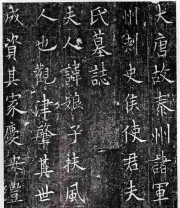 大唐故秦州諸軍
州刺史侯使君夫
氏墓誌
夫人諱娘子扶風
人也觀津肇其世
成資其家慶安豐